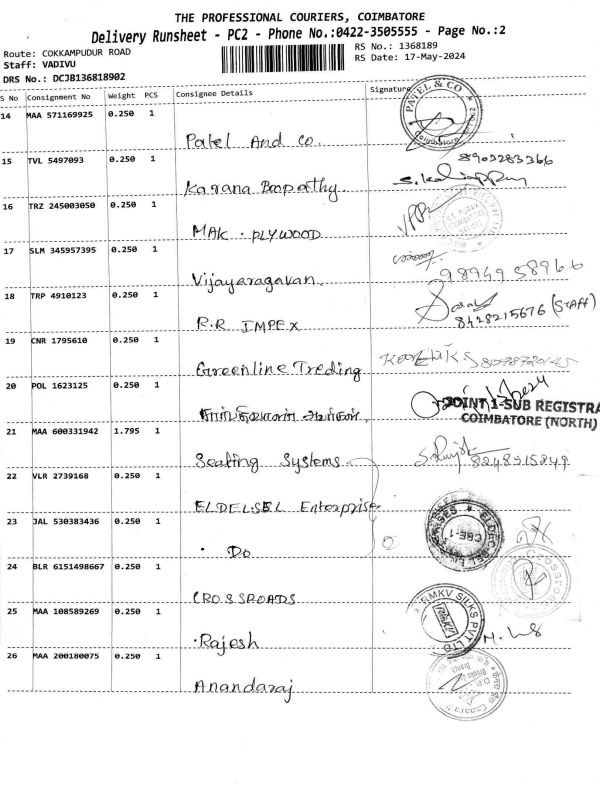 THE PROFESSIONAL COURIERS, COIMBATORE
Delivery Runsheet - PC2 - Phone No.:0422-3505555 - Page No.:2
Route: COKKAMPUDUR ROAD
RS No.: 1368189
Staff: VADIVU
RS Date: 17-May-2024
DRS No.: DCJB136818902
S No Consignment No Weight PCS Consignee Details Signature
14 MAA 571169925 0.250 1
PATEL & CO
Patel And Co.
15 TVL 5497093 0.250 1
8903283366
Karana
16 TRZ 245003050 0.250 1
MAK. PLYWOOD
17 SLM 345957395 0.250 1
Vijayaragavan
98949 58966
18 TRP 4910123 0.250 1
R.R IMPEX
8428215676 (STAFF)
19 CNR 1795610 0.250 1
Greenline Treding
20 POL 1623125 0.250 1
JOINT 1-SUB REGISTRA
COIMBATORE (NORTH)
21 MAA 600331942 1.795 1
Seating Systems
8248515849
22 VLR 2739168 0.250 1
ELDELSEL Enterprise
23 JAL 530383436 0.250 1
CBE-1
. Do
24 BLR 6151498667 0.250 1
CROSSROADS
25 MAA 108589269 0.250 1
RMKV SILKS PVT LTD
.Rajesh
26 MAA 200180075 0.250 1
Anandaraj